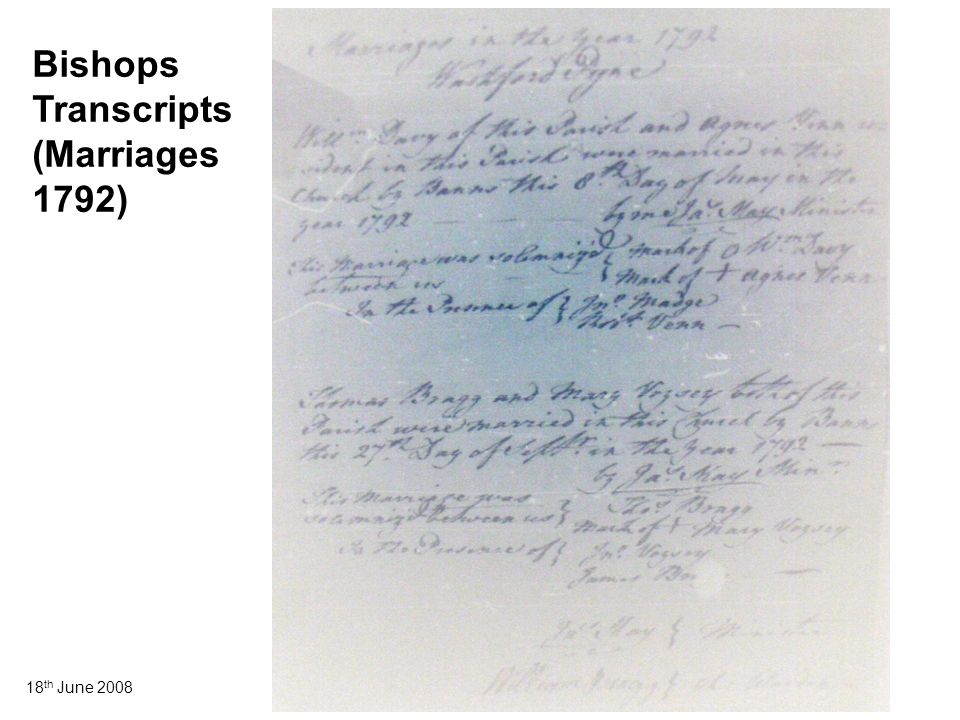 Bishops
Transcripts
(Marriages
1792)
Marriages in the Year 1792
Washford Pyne
Willm. Davy of this Parish and Agnes Venn re
sident in this Parish were married in this
Church by Banns this 8th. Day of May in the
year 1792 — by me Jas. May Minister
This Marriage was solemniz'd { Mark of O Wm. Davy
between us { Mark of + Agnes Venn
In the Presence of { Jno. Madge
Robt. Venn —
Thomas Bragg and Mary Voysey both of this
Parish were married in this Church by Banns
this 27th Day of Septr. in the Year 1792 —
by Jas. May Minr.
This Marriage was } Thos. Bragg
solemniz'd between us } Mark of + Mary Voysey
In the Presence of { Jno. Voysey
James —
Jas. May } Minister
William Bragg }
18th June 2008